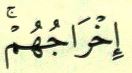 إِخْرَاجُهُمْۚ